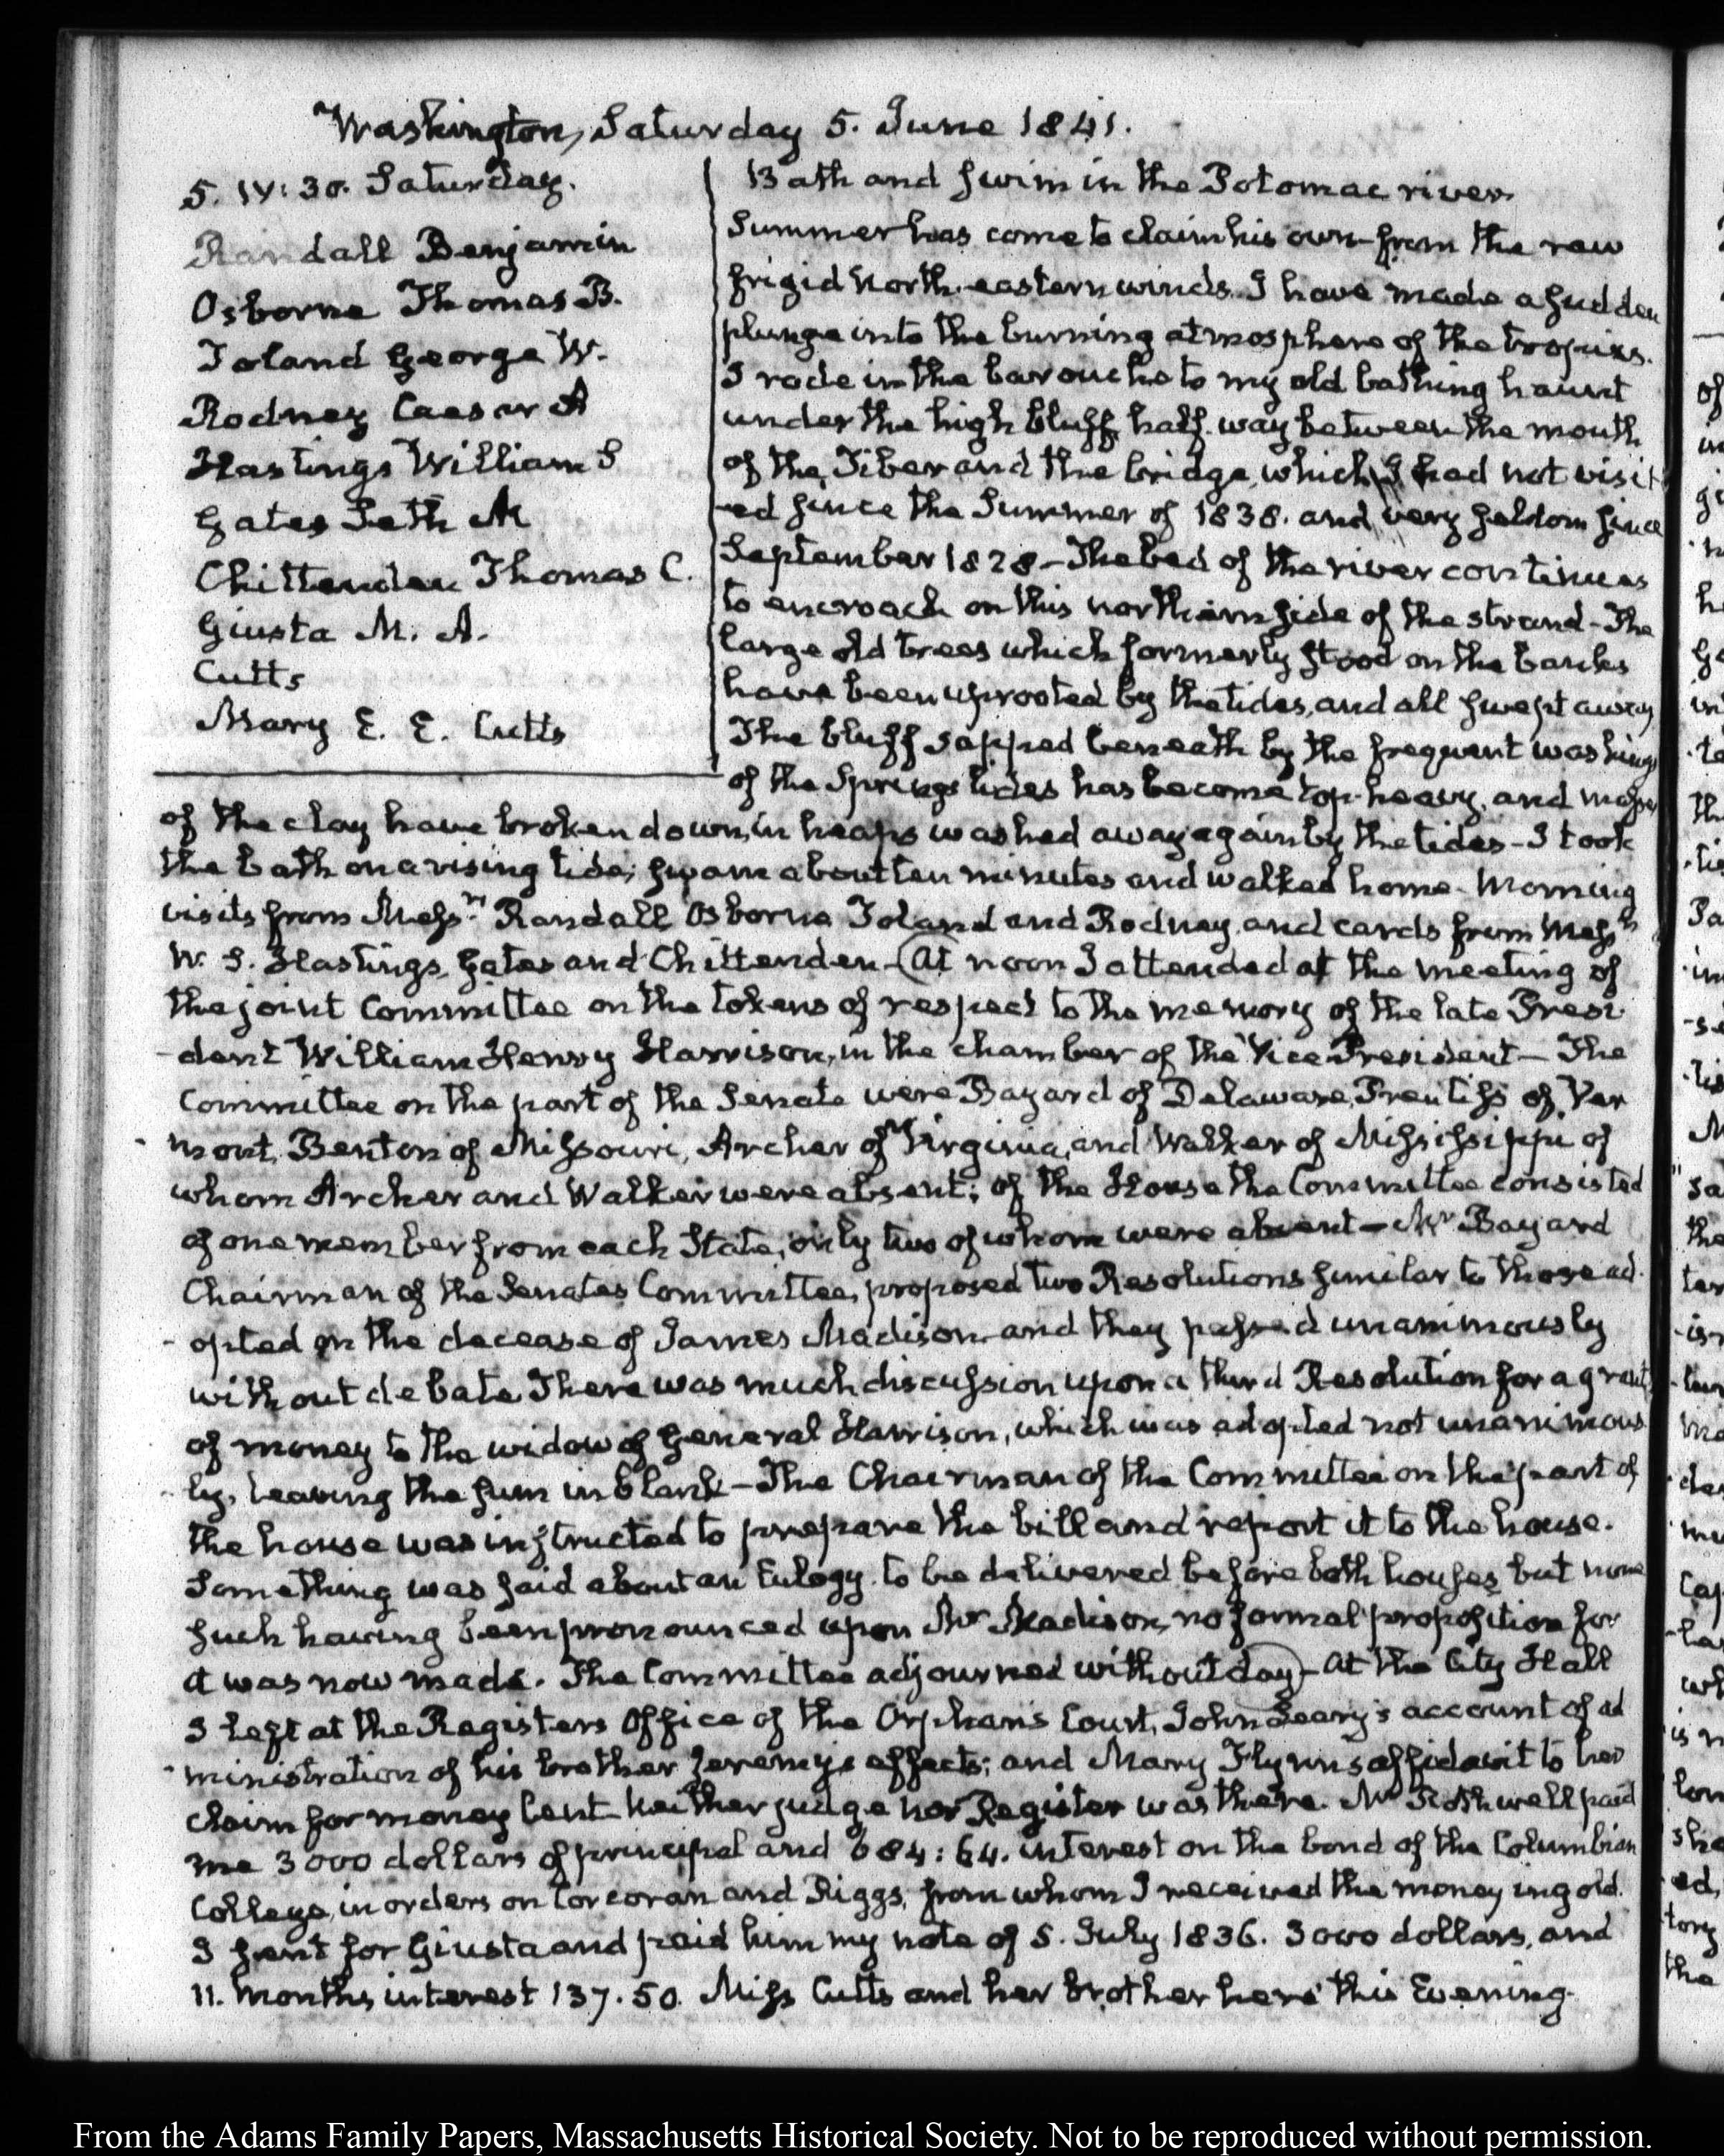 Washington, Saturday 5. June 1841.
5. IV: 30. Saturday.
Randall Benjamin
Osborne Thomas B.
Toland George W.
Rodney Caesar A
Hastings William S
Gates Seth M
Chittenden Thomas C.
Giusta M. A.
Cutts
Mary E. E. Cutts
Bath and swim in the Potomac river.
Summer has come to claim his own—from the raw
frigid North-eastern winds. I have made a sudden
plunge into the burning atmosphere of the tropics.
I rode in the barouche to my old bathing haunt
under the high bluff, half way between the mouth
of the Tiber and the bridge, which I had not visit
-ed since the Summer of 1838. and very seldom since
September 1828—The bed of the river continues
to encroach on this northern side of the strand—The
large old trees which formerly stood on the banks
have been uprooted by the tides, and all swept away
The bluff sapped beneath by the frequent washings
of the Spring tides has become top-heavy, and masses
of the clay have broken down, in heaps washed away again by the tides—I took
the bath on a rising tide; swam about ten minutes and walked home—Morning
visits from Messrs Randall Osborne Toland and Rodney, and cards from Messrs
W. S. Hastings, Gates and Chittenden—At noon I attended at the meeting of
the joint Committee on the tokens of respect to the memory of the late Presi
-dent William Henry Harrison, in the chamber of the Vice President—The
Committee on the part of the Senate were Bayard of Delaware, Prentiss of Ver
-mont, Benton of Missouri, Archer of Virginia, and Walker of Mississippi of
whom Archer and Walker were absent; of the House the Committee consisted
of one member from each State, only two of whom were absent—Mr Bayard
Chairman of the Senates Committee, proposed two Resolutions similar to those ad-
-opted on the decease of James Madison and they passed unanimously
without debate There was much discussion upon a third Resolution for a grant
of money to the widow of General Harrison, which was adopted not unanimous
-ly, leaving the sum in blank—The Chairman of the Committee on the part of
the house was instructed to prepare the bill and report it to the house.
Something was said about an Eulogy to be delivered before both houses but none
such having been pronounced upon Mr Madison, no formal proposition for
it was now made. The Committee adjourned without day—At the City Hall
I left at the Registers Office of the Orphan's Court, John Leary's account of ad
-ministration of his brother Jeremy's effects; and Mary Flynns affidavit to her
claim for money lent—Neither judge nor Register was there. Mr Rothwell paid
me 3000 dollars of principal and 684:64. interest on the bond of the Columbian
College, in orders on Corcoran and Riggs, from whom I received the money in gold.
I sent for Giusta and paid him my note of 5. July 1836. 3000 dollars, and
11. months interest 137.50. Miss Cutts and her brother here this Evening.
From the Adams Family Papers, Massachusetts Historical Society. Not to be reproduced without permission.